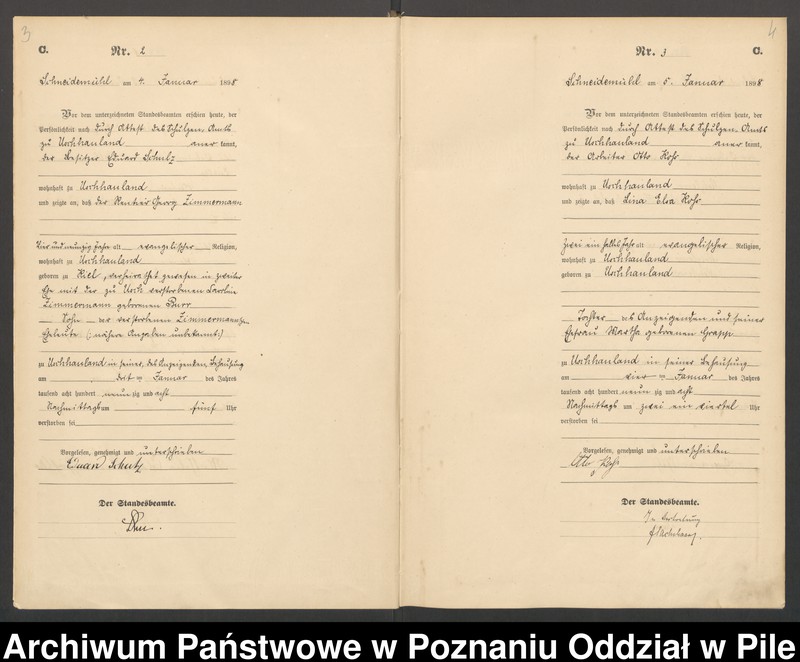 3
C.
Nr. 2
Schneidemühl am 4. Januar 1898
Vor dem unterzeichneten Standesbeamten erschien heute, der
Persönlichkeit nach durch Attest des Schulzen-Amts
zu Uschhauland anerkannt,
der Besitzer Eduard Schulz
wohnhaft zu Uschhauland
und zeigte an, daß der Rentier Georg Zimmermann
vier und neunzig Jahr alt evangelischer Religion,
wohnhaft zu Uschhauland
geboren zu Kiel, verheirathet gewesen in zweiter
Ehe mit der zu Usch verstorbenen Caroline
Zimmermann geborenen
Sohn der verstorbenen Zimmermann'schen
Eheleute (: nähere Angaben unbekannt :)
zu Uschhauland in seiner, des Anzeigenden, Behausung
am dritten Januar des Jahres
tausend acht hundert neunzig und acht
Nachmittags um fünf Uhr
verstorben sei
Vorgelesen, genehmigt und unterschrieben
Eduard Schulz
Der Standesbeamte.
4
Nr. 3
C.
Schneidemühl am 5. Januar 1898
Vor dem unterzeichneten Standesbeamten erschien heute, der
Persönlichkeit nach durch Attest des Schulzen-Amts
zu Uschhauland anerkannt,
der Arbeiter Otto Kohr
wohnhaft zu Uschhauland
und zeigte an, daß Lina Elsa Kohr
zwei ein halbes Jahr alt evangelischer Religion,
wohnhaft zu Uschhauland
geboren zu Uschhauland
Tochter des Anzeigenden und seiner
Ehefrau Martha geborenen
zu Uschhauland in seiner Behausung
am vierten Januar des Jahres
tausend acht hundert neunzig und acht
Nachmittags um zwei ein viertel Uhr
verstorben sei
Vorgelesen, genehmigt und unterschrieben
Otto Kohr
Der Standesbeamte.
In Vertretung
Archiwum Państwowe w Poznaniu Oddział w Pile